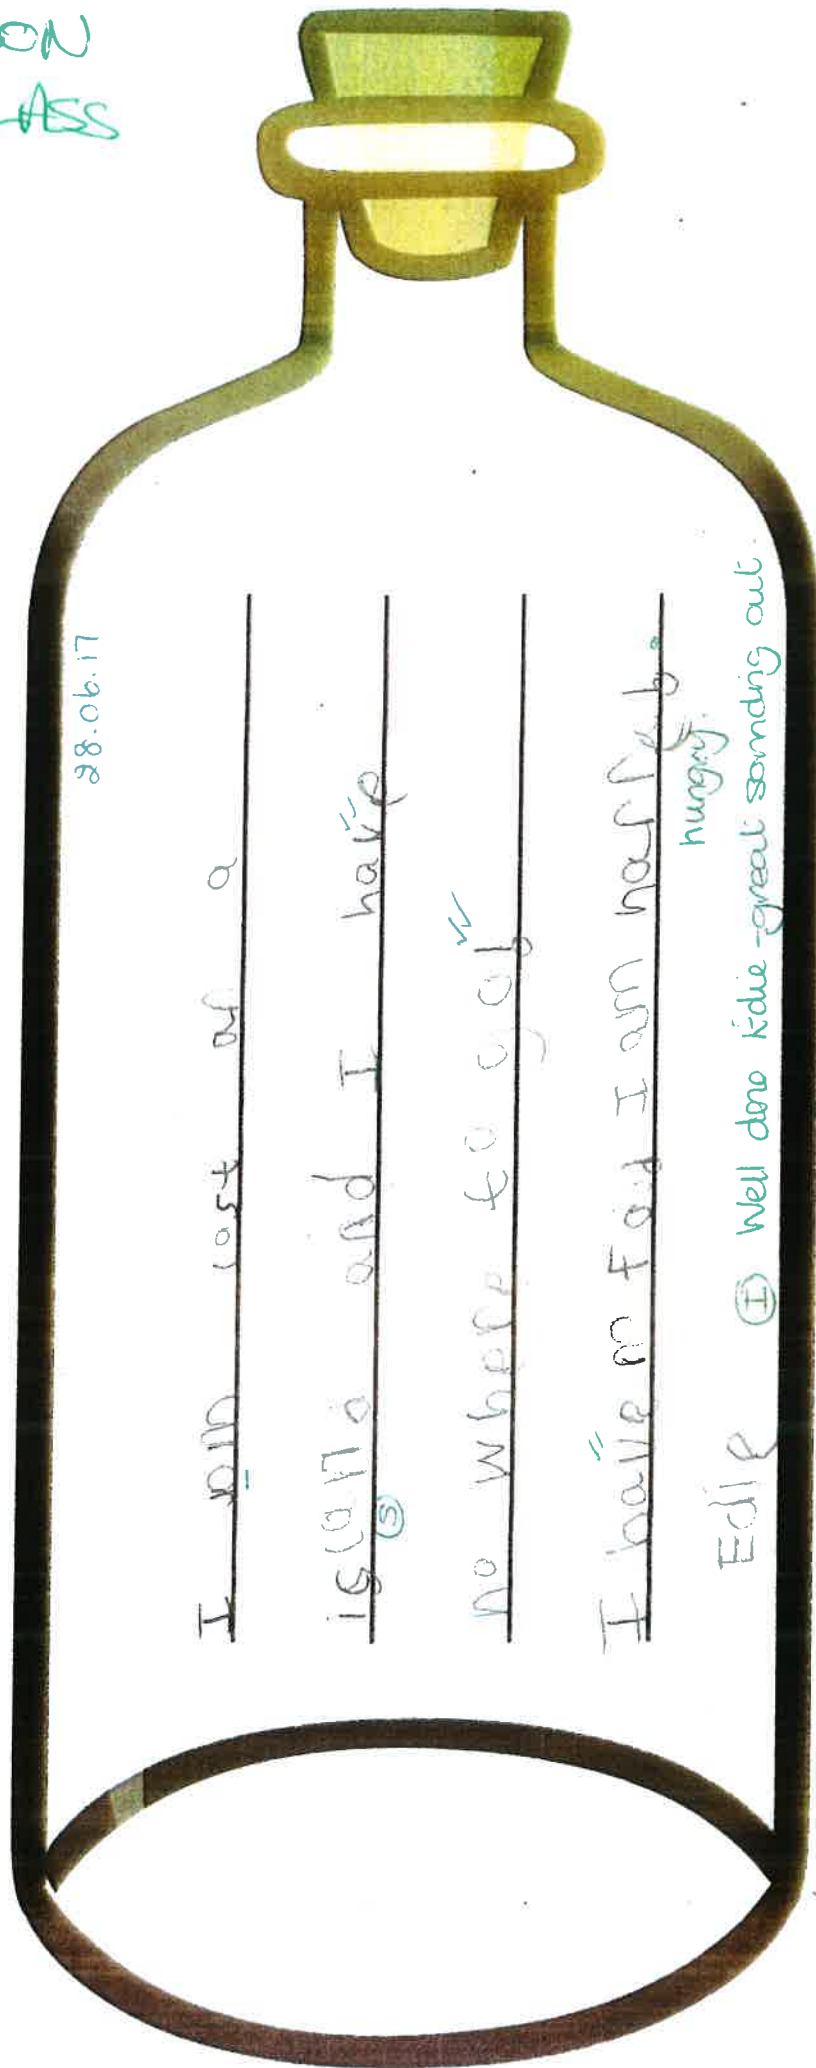 ON
ASS
28.06.17
I am cast of a
iscand and I have
no where to go
I have no fod I am
hungry.
Edie
I Well done Edie - great sounding out.